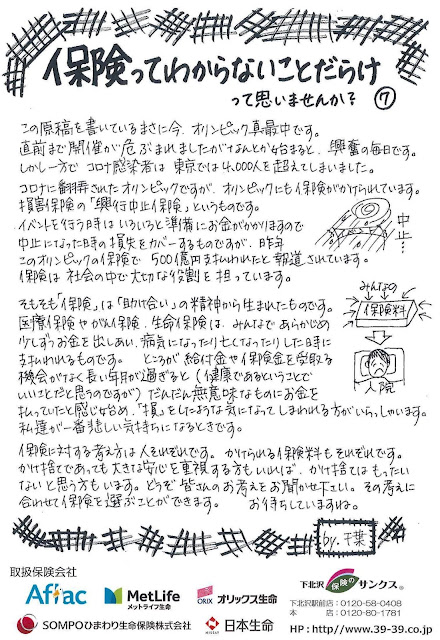 保険ってわからないことだらけ
って思いませんか? ⑦
この原稿を書いているまさに今、オリンピック真最中です。
直前まで開催が危ぶまれましたがなんとか始まると、興奮の毎日です。
しかし一方でコロナ感染者は東京では4,000人を超えてしまいました。
コロナに翻弄されたオリンピックですが、オリンピックにも保険がかけられています。
損害保険の「興行中止保険」というものです。
イベントを行う時はいろいろと準備にお金がかかりますので
中止になった時の損失をカバーするものですが、昨年
このオリンピックの保険で500億円支払われたと報道されています。
保険は社会の中で大切な役割を担っています。
中止…
そもそも「保険」は「助け合い」の精神から生まれたものです。
医療保険やがん保険、生命保険は、みんなであらかじめ
少しずつお金を出しあい、病気になったり亡くなったりした時に
支払われるものです。 ところが給付金や保険金を受取る
機会がなく長い年月が過ぎると(健康であるということで
いいことだと思うのですが)だんだん無意味なものにお金を
払っていたと感じ始め、「損」をしたような気になってしまわれる方がいらっしゃいます。
私達が一番悲しい気持ちになるときです。
みんなの
保険料
入院
保険に対する考え方は人それぞれです。かけられる保険料もそれぞれです。
かけ捨てであっても大きな安心を重視する方もいれば、かけ捨てはもったい
ないと思う方もいます。どうぞ皆さんのお考えをお聞かせ下さい。その考えに
合わせて保険を選ぶことができます。 お待ちしていますね。
by.千葉
取扱保険会社
Aflac
MetLife
メットライフ生命
ORIX
オリックス生命
SOMPOひまわり生命保険株式会社
NISSAY
日本生命
下北沢 保険のサンクス®
下北沢駅前店:0120-58-0408
本 店:0120-80-1781
HP:http://www.39-39.co.jp